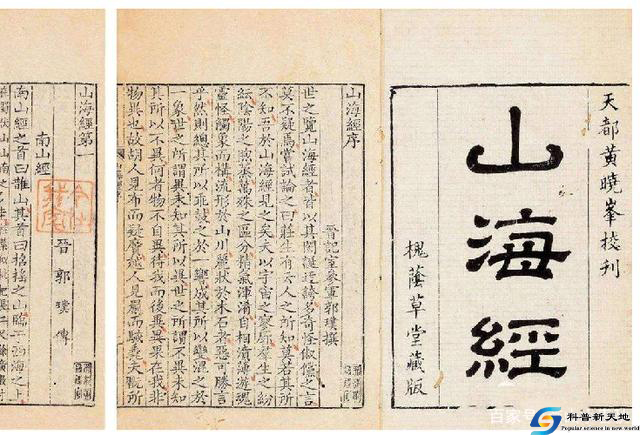 天都黃曉峯校刊
山海經
槐蔭草堂藏版
山海經序
晉記室參軍郭璞撰
世之覽山海經者皆以其閎誕迂誇多奇怪俶儻之言
莫不疑焉嘗試論之曰莊生有云人之所知莫若其所
不知吾於山海經見之矣夫以宇宙之寥廓羣生之紛
紜陰陽之煦蒸萬殊之區分精氣渾淆自相濆薄遊魂
靈怪觸象而構流形於山川麗狀於木石者惡可勝言
乎然則總其所以乖鼓之於一響成其所以變混之於
一象世之所謂異未知其所以異世之所謂不異未知
其所以不異何者物不自異待我而後異異果在我非
物異也故胡人見布而疑黂越人見罽而駭毳夫翫所
山海經第一
南山經
晉 郭璞傳
南山經之首曰䧿山其首曰招搖之山臨于西海之上
百家号
科普新天地
Popular science in new world